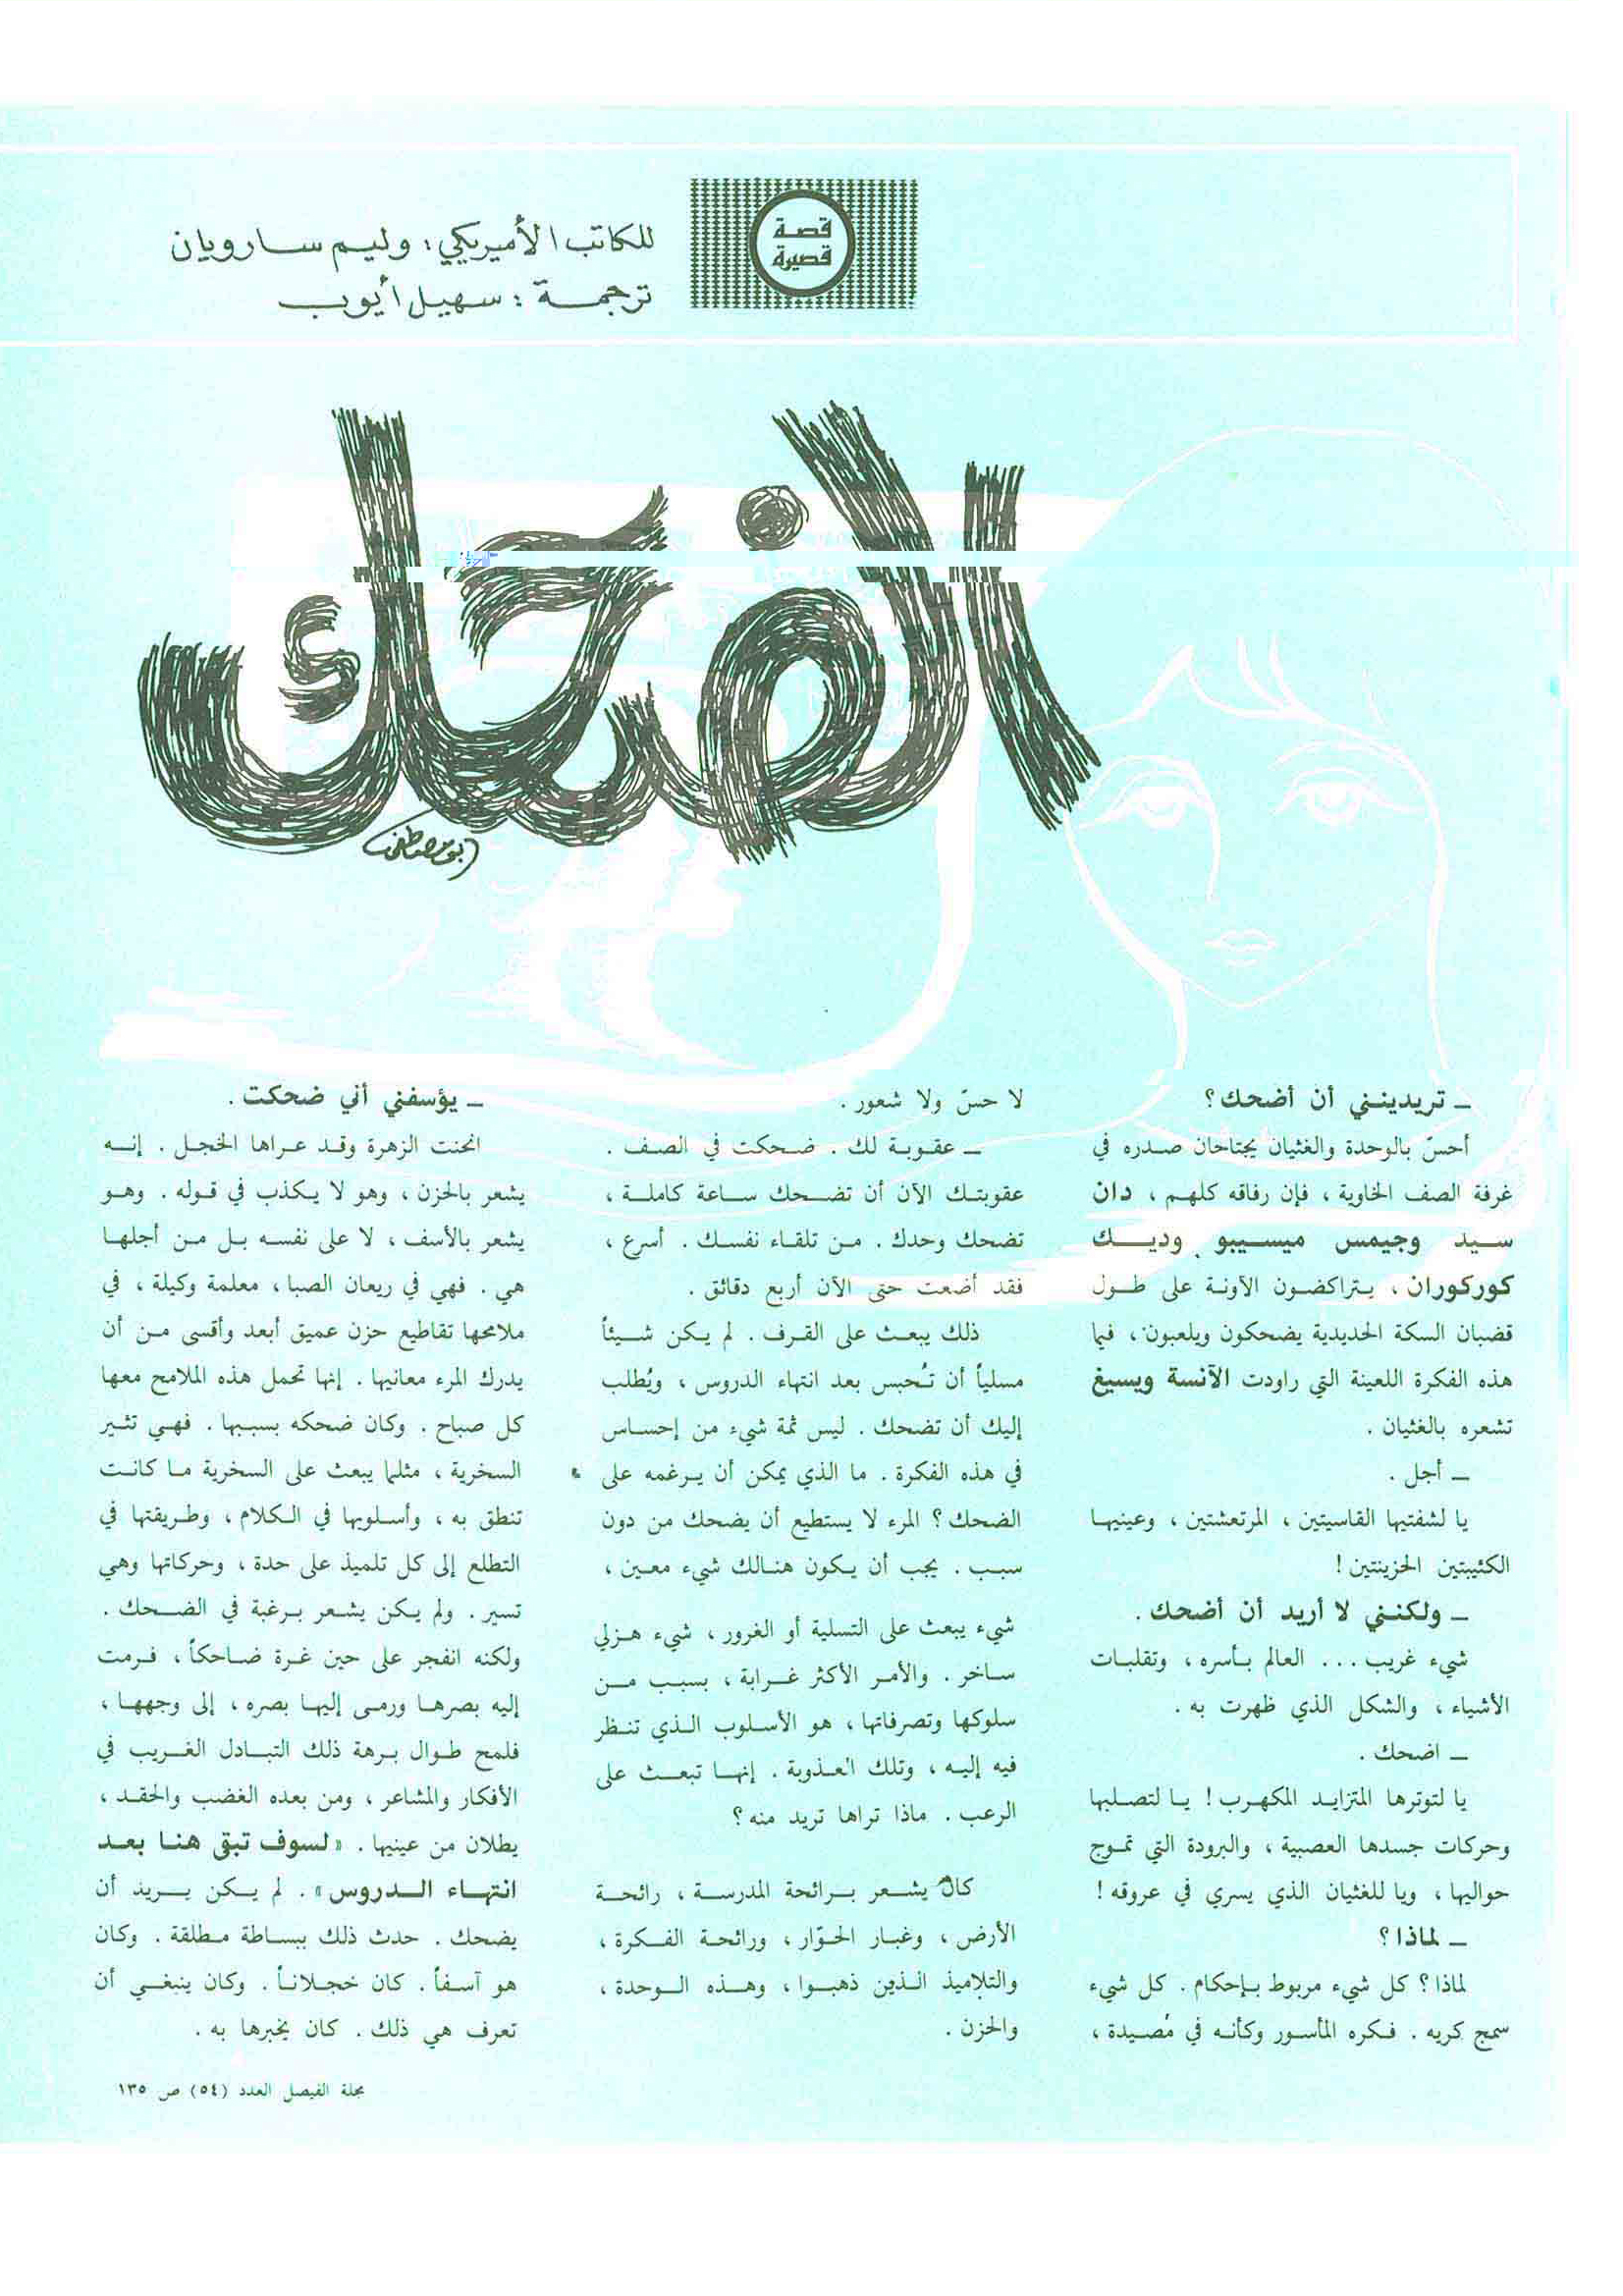 قصة
قصيرة
للكاتب الأميريكي: وليم سارويان
ترجمة: سهيل أيوب
الضحك
ابو مصطفى
ــ تريدينني أن أضحك؟
أحسّ بالوحدة والغثيان يجتاحان صدره في
غرفة الصف الخاوية، فإن رفاقه كلهم، دان
سيد وجيمس ميسيبو وديك
كوركوران، يتراكضون الآونة على طول
قضبان السكة الحديدية يضحكون ويلعبون، فيا
هذه الفكرة اللعينة التي راودت الآنسة ويسيغ
تشعره بالغثيان.
ــ أجل.
يا لشفتيها القاسيتين، المرتعشتين، وعينيها
الكئيبتين الحزينتين!
ــ ولكنني لا أريد أن أضحك.
شيء غريب... العالم بأسره، وتقلبات
الأشياء، والشكل الذي ظهرت به.
ــ اضحك.
يا لتوترها المتزايد المكهرب! يا لتصلبها
وحركات جسدها العصبية، والبرودة التي تموج
حواليها، ويا للغثيان الذي يسري في عروقه!
ــ لماذا؟
لماذا؟ كل شيء مربوط بإحكام. كل شيء
سمج كريه. فكره المأسور وكأنه في مُصيدة،
لا حسّ ولا شعور.
ــ عقوبة لك. ضحكت في الصف.
عقوبتك الآن أن تضحك ساعة كاملة،
تضحك وحدك. من تلقاء نفسك. أسرع،
فقد أضعت حتى الآن أربع دقائق.
ذلك يبعث على القرف. لم يكن شيئاً
مسلياً أن تُحبس بعد انتهاء الدروس، ويُطلب
إليك أن تضحك. ليس ثمة شيء من إحساس
في هذه الفكرة. ما الذي يمكن أن يرغمه على
الضحك؟ المرء لا يستطيع أن يضحك من دون
سبب. يجب أن يكون هنالك شيء معين،
شيء يبعث على التسلية أو الغرور، شيء هزلي
ساخر. والأمر الأكثر غرابة، بسبب من
سلوكها وتصرفاتها، هو الأسلوب الذي تنظر
فيه إليه، وتلك العذوبة. إنها تبعث على
الرعب. ماذا تراها تريد منه؟
كان يشعر برائحة المدرسة، رائحة
الأرض، وغبار الحوّار، ورائحة الفكرة،
والتلاميذ الذين ذهبوا، وهذه الوحدة،
والحزن.
ــ يؤسفني أني ضحكت.
انحنت الزهرة وقد عراها الخجل. إنه
يشعر بالحزن، وهو لا يكذب في قوله. وهو
يشعر بالأسف، لا على نفسه بل من أجلها
هي. فهي في ريعان الصبا، معلمة وكيلة، في
ملامحها تقاطيع حزن عميق أبعد وأقسى من أن
يدرك المرء معانيها. إنها تحمل هذه الملامح معها
كل صباح. وكان ضحكه بسببها. فهي تثير
السخرية، مثلما يبعث على السخرية ما كانت
تنطق به، وأسلوبها في الكلام، وطريقتها في
التطلع إلى كل تلميذ على حدة، وحركاتها وهي
تسير. ولم يكن يشعر برغبة في الضحك.
ولكنه انفجر على حين غرة ضاحكاً، فرمت
إليه بصرها ورمى إليها بصره، إلى وجهها،
فلمح طوال برهة ذلك التبادل الغريب في
الأفكار والمشاعر، ومن بعده الغضب والحقد،
يطلان من عينيها. «لسوف تبق هنا بعد
انتهاء الدروس». لم يكن يريد أن
يضحك. حدث ذلك ببساطة مطلقة. وكان
هو آسفاً. كان خجلاناً. وكان ينبغي أن
تعرف هي ذلك. كان يخبرها به.
مجلة الفيصل العدد (٥٤) ص ١٣٥